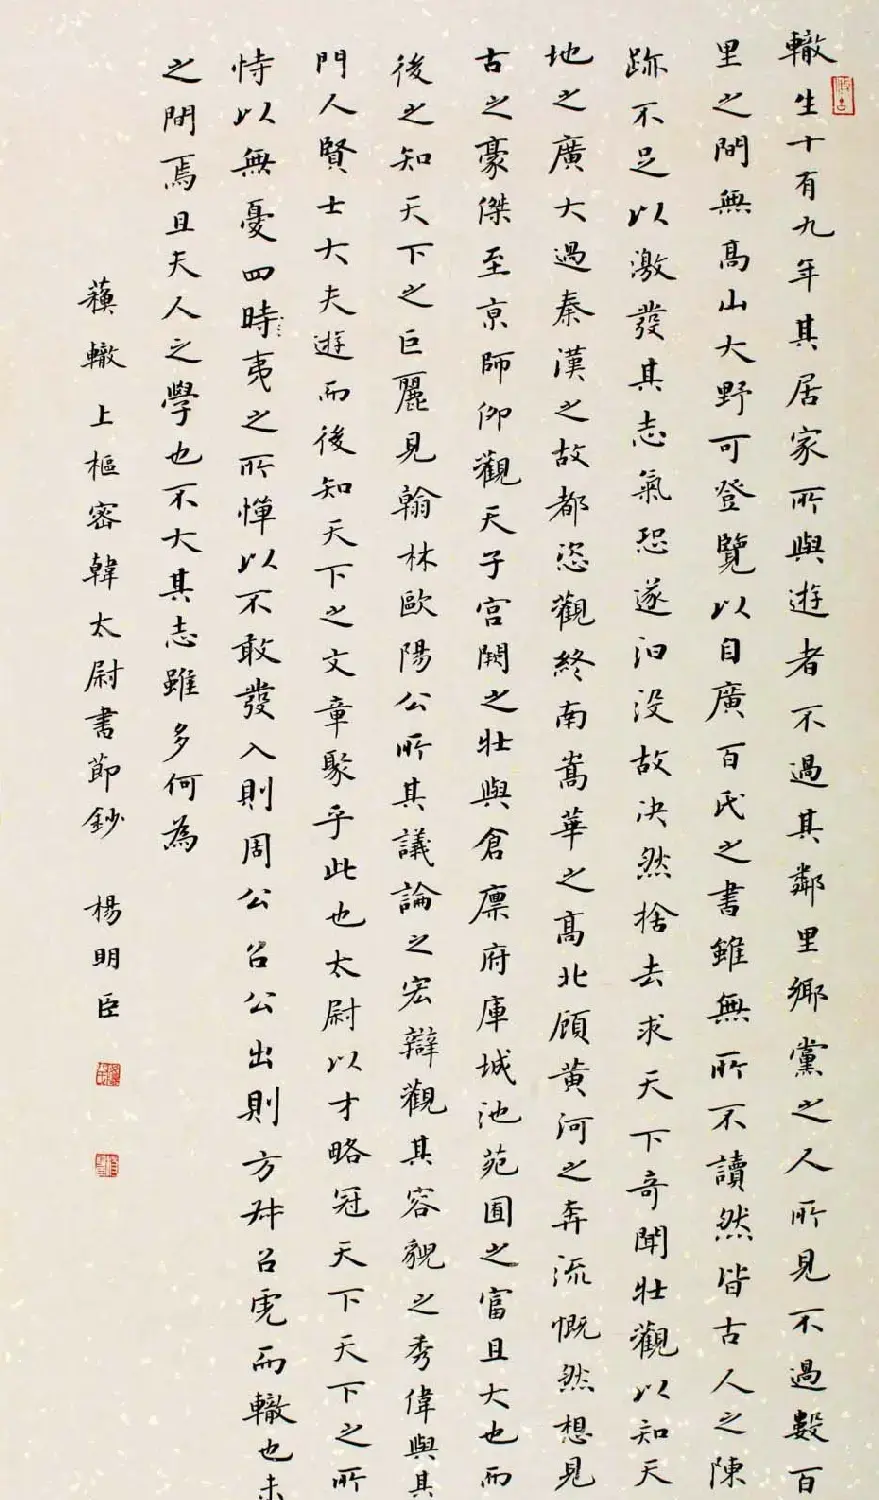 轍生十有九年其居家所與遊者不過其鄰里鄉黨之人所見不過數百
里之間無高山大野可登覽以自廣百氏之書雖無所不讀然皆古人之陳
跡不足以激發其志氣恐遂汩没故决然捨去求天下奇聞壯觀以知天
地之廣大過秦漢之故都恣觀終南嵩華之高北顧黃河之奔流慨然想見
古之豪傑至京師仰觀天子宮闕之壯與倉廩府庫城池苑囿之富且大也而
後之知天下之巨麗見翰林歐陽公所其議論之宏辯觀其容貌之秀偉與其
門人賢士大夫遊而後知天下之文章聚乎此也太尉以才略冠天下天下之所
恃以無憂四時夷之所憚以不敢發入則周公召公出則方叔召虎而轍也未
之間焉且夫人之學也不大其志雖多何為
蘇轍上樞密韓太尉書節鈔 楊明臣